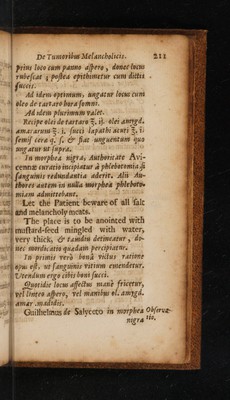 De Tumoribus Melancholicis. 211
prius loco cum panno aspero, donec locus
rubescat; postea epithimetur cum dictis
succis.
Ad idem optimum, ungatur locus cum
oleo de tartaro hora somni.
Ad idem plurimum valet.
Recipe olei de tartaro ℥. ij. olei amygd.
amararum ℥. j. succi lapathi acuti ℥. j.
semis cera q. s. & fiat unguentum quo
ungatur ut supra.
In morphea nigra, Authoritate Avi-
cennæ curatio incipiatur à phlebotomia si
sanguinis redundantia aderit. Alii Au-
thores autem in nulla morphea phleboto-
miam admitebant.
Let the Patient beware of all salt
and melancholy meats.
The place is to be anointed with
mustard-seed mingled with water,
very thick, & tamdiu detineatur, do-
nec mordicatio quædam percipiatur.
In primis verò bonâ victus ratione
opus est, ut sanguinis vitium emendetur.
Utendum ergo cibis boni succi.
Quotidie locus affectus manè fricetur,
vel linteo aspero, vel manibus ol. amygd.
amar. madidis.
Guilhelmus de Salyceto in morphea Observa-
nigra tio.